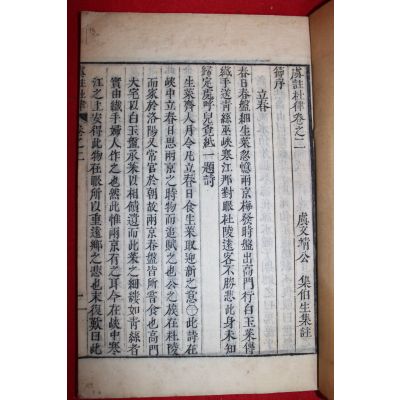 虞註杜律卷之二
虞文靖公 集伯生集註
節序
立春
春日春盤細生菜忽憶兩京梅發時盤出高門行白玉菜傳
纖手送青絲巫峽寒江那對眼杜陵遠客不勝悲此身未知
歸定處呼兒覓紙一題詩
生菜齊人月令凡立春日食生菜取迎新之意○此詩在
峽中立春日思兩京之時物而追賦之也公之族在杜陵
而家於洛陽又常官於朝故兩京春盤皆所嘗食也高門
大宅以白玉盤承菜以相饋遺而此菜之細縷如青絲者
實由纖手婦人作之也然此惟兩京有之耳今在峽中寒
江之上安得此物在眼所以重遠鄉之悲也末復歎曰此
虞註杜律 卷之二 一